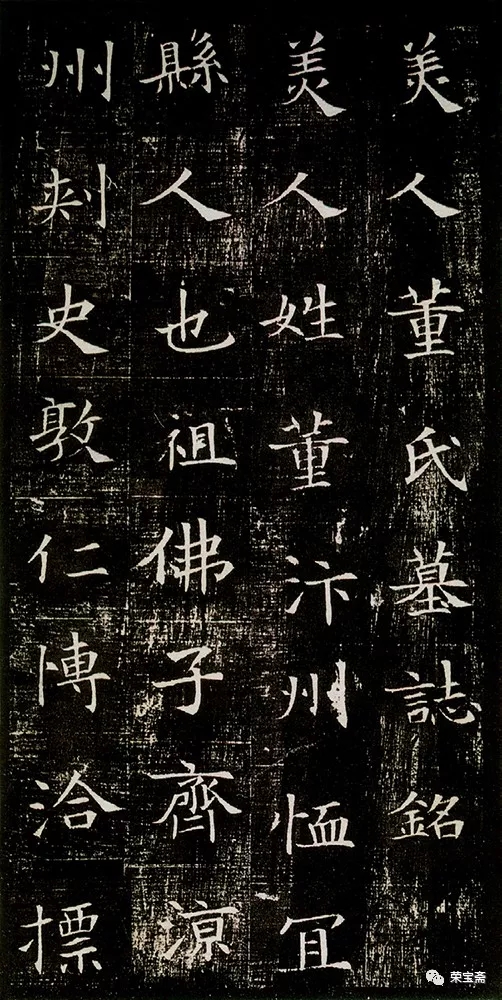 美人董氏墓誌銘
美人姓董汴州恤宜
縣人也祖佛子齊涼
州刺史敦仁博洽標
荣宝斋